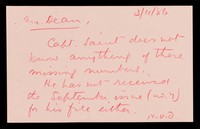 Mr. Dean,
Capt. Saint does not
know anything of these
missing numbers.
He has not received
the September issue (No 9)
for his file either.